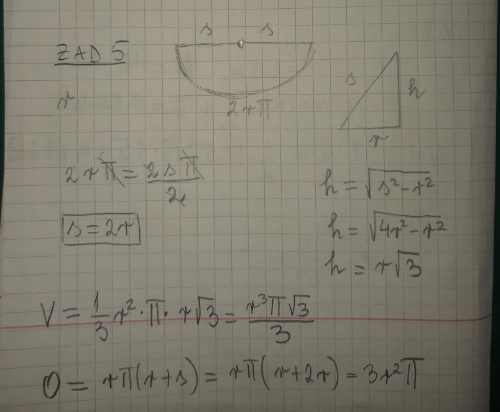 ZAD 5
s s
2rπ
r
s h
r
2rπ = 2sπ/2
s = 2r
h = √(s²-r²)
h = √(4r²-r²)
h = r√3
V = 1/3 r² · π · r√3 = r³π√3/3
O = rπ(r+s) = rπ(r+2r) = 3r²π